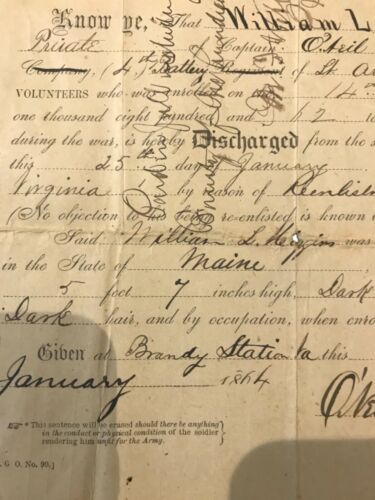 Know ye, That William L
Private of Captain O'Neil
Company, (4th Battery Regiment of Lt. Ar
VOLUNTEERS who was enrolled on the 14th
one thousand eight hundred and 62
during the war, is hereby Discharged from the s
this 25th day January
Virginia by reason of Reenlist
(No objection to his being re-enlisted is known
Said William L. Higgins was
in the State of Maine
5 feet 7 inches high, Dark
Dark hair, and by occupation, when enro
Given at Brandy Station Va this
January 1864
☞ * This sentence will be erased should there be anything
in the conduct or physical condition of the soldier
rendering him unfit for the Army.
G O. No. 99.]